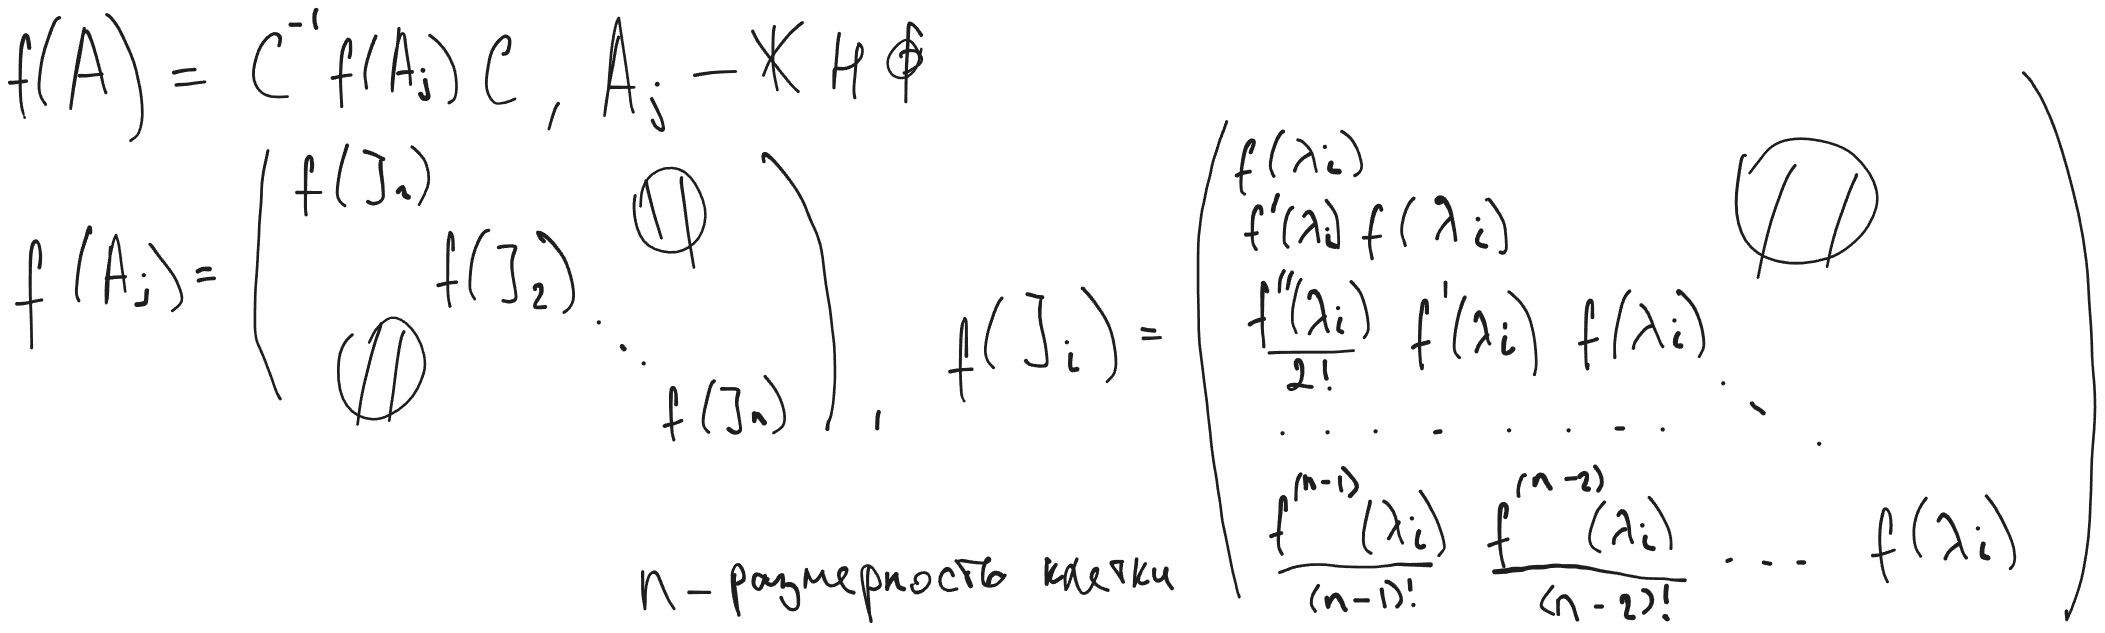 f(A) = C⁻¹ f(A_j) C , A_j – ЖНФ
f(A_j) = ( f(J_1) f(J_2) ⋱ f(J_n) 0 0 ) , f(J_i) = (
f(λ_i) 0
f'(λ_i) f(λ_i)
f''(λ_i)/2! f'(λ_i) f(λ_i) ⋱
. . . . . . . .
f^(n-1)(λ_i)/(n-1)! f^(n-2)(λ_i)/(n-2)! ... f(λ_i) )
n – размерность клетки